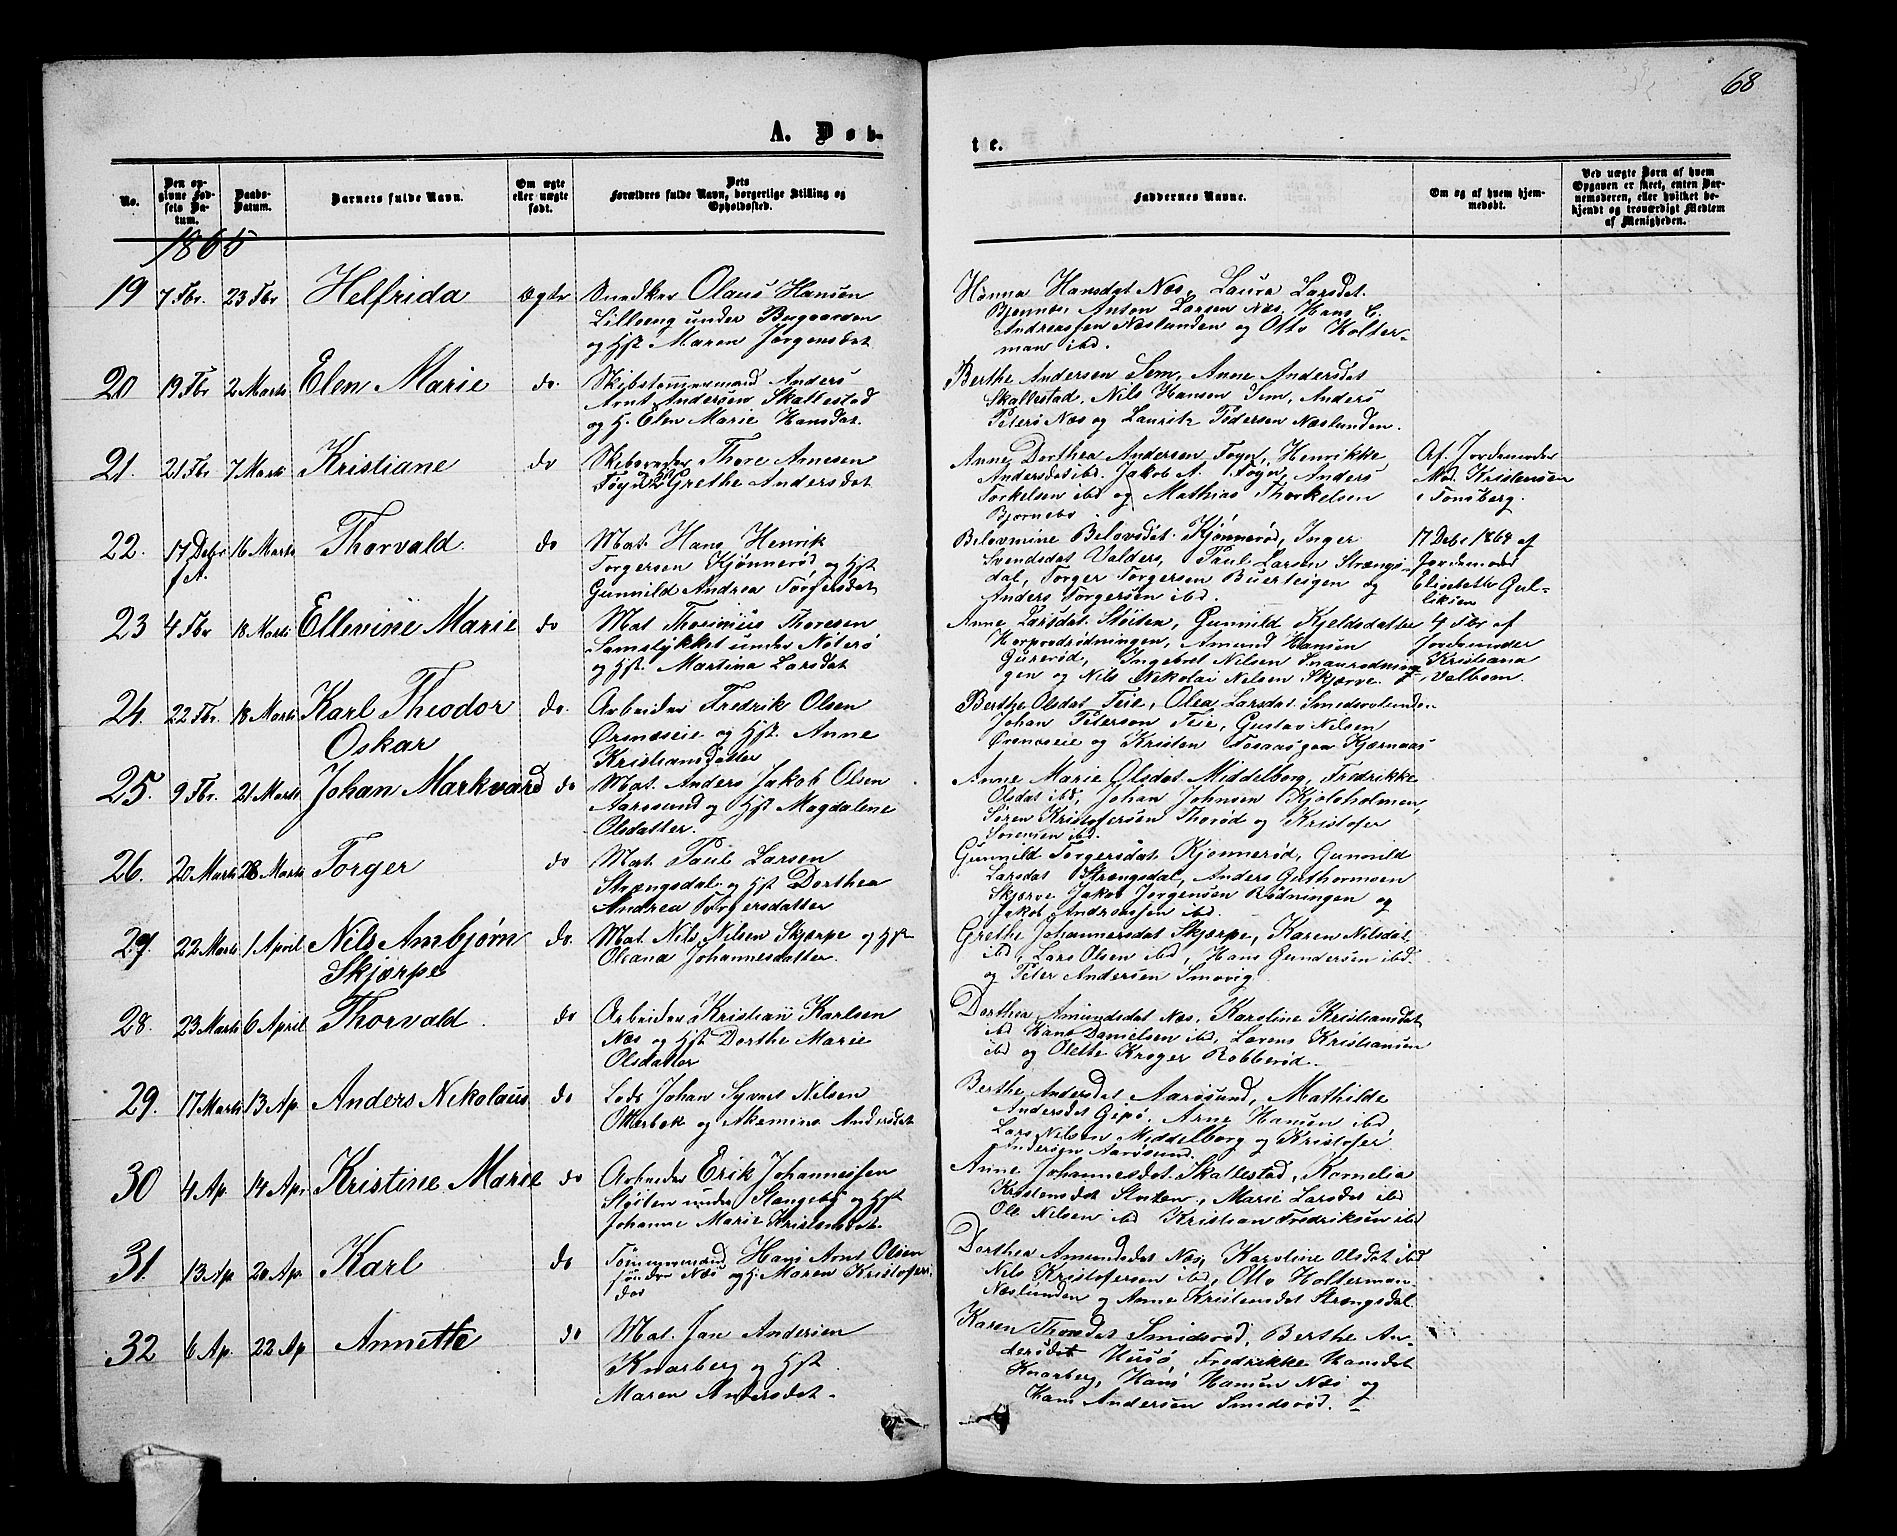 68
A. Døb-
te.
No.
Den op-
givne Fød-
sels Da-
tum.
Daabs-
Datum.
Barnets fulde Navn.
Om ægte
eller uægte
født.
Dets
Forældres fulde Navn, borgerlige Stilling og
Opholdssted.
Faddernes Navne.
Om og af hvem hjem-
medøbt.
Ved uægte Børn af hvem
Opgaven er skeet, enten Bar-
nemoderen, eller hvilket be-
kjendt og troværdigt Medlem
af Menigheden.
1865
19 7 Fbr. 23 Fbr Helfrida ægte Snedker Olaus Hansen
Lilleeng under Bugaarden
og Hst Maren Jørgensdat
Hønna Hansdat Næs, Laura Larsdat
Bjønnes, Anton Larsen Næs, Hans C.
Andreassen Næslunden og Otto Holter-
man ibd.
20 19 Fbr 2 Marts Elen Marie do. Skibstømmermand Anders
Arnt Andersen Skallestad
og H. Elen Marie Hansdat.
Berthe Andersen Sem, Anne Andersdat
Skallestad, Nils Hansen Sem, Anders
Peters Næs og Lauritz Pedersen Næslunden.
21. 21 Fbr 7 Marts Kristiane do Skibsreder Thore Arnesen
Føyn og Hst Grethe Andersdat
Anne Dorthea Andersen Føyn, Henrikke
Andersdat ibd. Jakob A. Føyn, Anders
Torkelsen ibd og Mathias Thorkelsen
Bjørnebo.
Af Jordemoder
Mad. Kristensen
i Tønsberg.
22. 17 Debr. 16 Marts Thorvald. do Mat. Hans Henrik
f. A.
Torgersen Kjønnerød og Hst
Gunnild Andrea Torgersdat
Belovmine Belovsdat. Kjønnerød, Inger
Svendsdat Valders, Paul Larsen Strængs-
dal, Torger Torgersen Buerstigen og
Anders Torgersen ibd.
17 Debr 1864 af
Jordemoder
Elisbeth Gul-
liksen
23 4 Fbr 18 Marts Ellevine Marie do Mat Thorinius Thoresen
Samstykket under Nøterø
og Hst. Martina Larsdat
Anne Larsdat Støiten, Gunnild Kjeldsdatter
Herprodrødningen, Amund Hansen
Gurerød, Ingebret Nilsen Snaurødnin-
gen og Nils Nikolai Nilsen Skjærve.
4 Fbr af
Jordemoder
Kristiana
Valbom.
24. 22 Fbr. 18 Marts Karl Theodor do. Arbeider Fredrik Olsen
Oskar
Ørsnæseie og Hst. Anne
Kristiansdatter
Berthe Olsdat Teie, Olea Larsdat Smedsrolunden
Johan Peterson Teie, Gustav Nilsen
Ørsnæseie og Kristen Tosaasgaa Kjærnaas
25. 9 Fbr. 21 Marts Johan Markvard do Mat. Anders Jakob Olsen
Aarøsund og Hst Magdalene
Olsdatter.
Anne Marie Olsdat. Middelborg, Fredrikke
Olsdat ibd, Johan Johnsen Kjøleholmen,
Søren Kristofersen Thorød og Kristofer
Sørensen ibd.
26. 20 Marts 28 Marts Torger do Mat. Paul Larsen
Strængsdal og Hst Dorthea
Andrea Torgersdatter
Gunnild Torgersdat. Kjønnerød, Gunnild
Larsdat Strængsdal, Anders Guthormsen
Skjerve Jakob Jørgensen Rødningen og
Jakob Andreassen ibd.
27. 22 Marts 1 April Nils Ambjørn do. Mat. Nils Nilsen Skjærpe og Hst
Skjærpe
Oleana Johannesdatter.
Grethe Johannersdat Skjærpe, Karen Nilsdat
ibd, Lars Olsen ibd, Hans Gundersen ibd.
og Peter Andersen Smovig
28. 23 Marts 6 April Thorvald. do Arbeider Kristian Karlsen
Næs og Hst Dorthe Marie
Olsdatter
Dorthea Amundsdat Næs, Karoline Kristiansdat
ibd Hans Danielsen ibd, Lorens Kristiansen
ibd og Olette Krøger Robberød.
29. 17 Marts 13 Ap. Anders Nikolaus do Lods Johan Syvert Nilsen
Oterbæk og Akamine Andersdat
Berthe Andersdat Aarøsund, Mathilde
Andersdat Gipø, Arne Hansen ibd,
Lars Nilsen Middelborg og Kristofer
Andersen Aarøsund.
30 4 Ap. 14 Apr Kristine Marie do Arbeider Erik Johannessen
Støiten under Stangeby og Hst
Johanne Marie Kristensdat.
Anne Johannesdat. Skallestad, Kornelia
Kristensdat Støiten, Marie Larsdat ibd
Ole Nilsen ibd Kristian Fredriksen ibd
31. 13 Ap 20 Ap. Karl do Tømmermand Hans Arnt Olsen
søndre Næs og H. Maren Kristofers-
dat
Dorthea Amundsdat Næs, Karoline Olsdat ibd
Nils Kristofersen ibd, Otto Holterman
Næslunden og Anne Kristensdat Strængsdal.
32 6 Ap. 22 Ap Annette do Mat. Jan Andersen
Knarberg og Hst.
Maren Andersdat.
Karen Thoredat Smidsrød, Berthe An-
dersdat Husø, Fredrikke Hansdat
Knarberg, Hans Hansen Næs og
Hans Andersen Smidsrød.